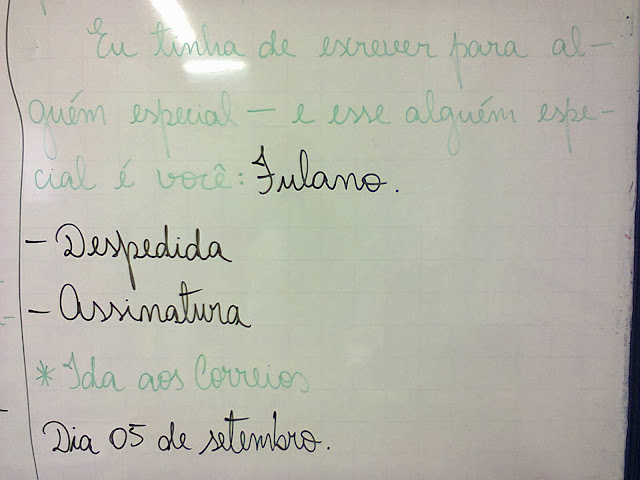 Eu tinha de escrever para al-
guém especial - e esse alguém espe-
cial é você: Fulano.
- Despedida
- Assinatura
* Ida aos Correios
Dia 05 de setembro.